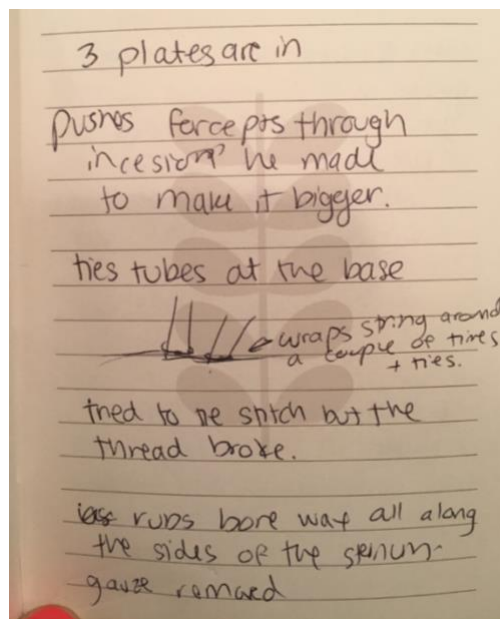 3 plates are in
pushes forcepts through
incesion he made
to make it bigger.
ties tubes at the base
wraps string around
a couple of times
+ ties.
tried to re stitch but the
thread broke.
rubs bone wax all along
the sides of the
gauze removed